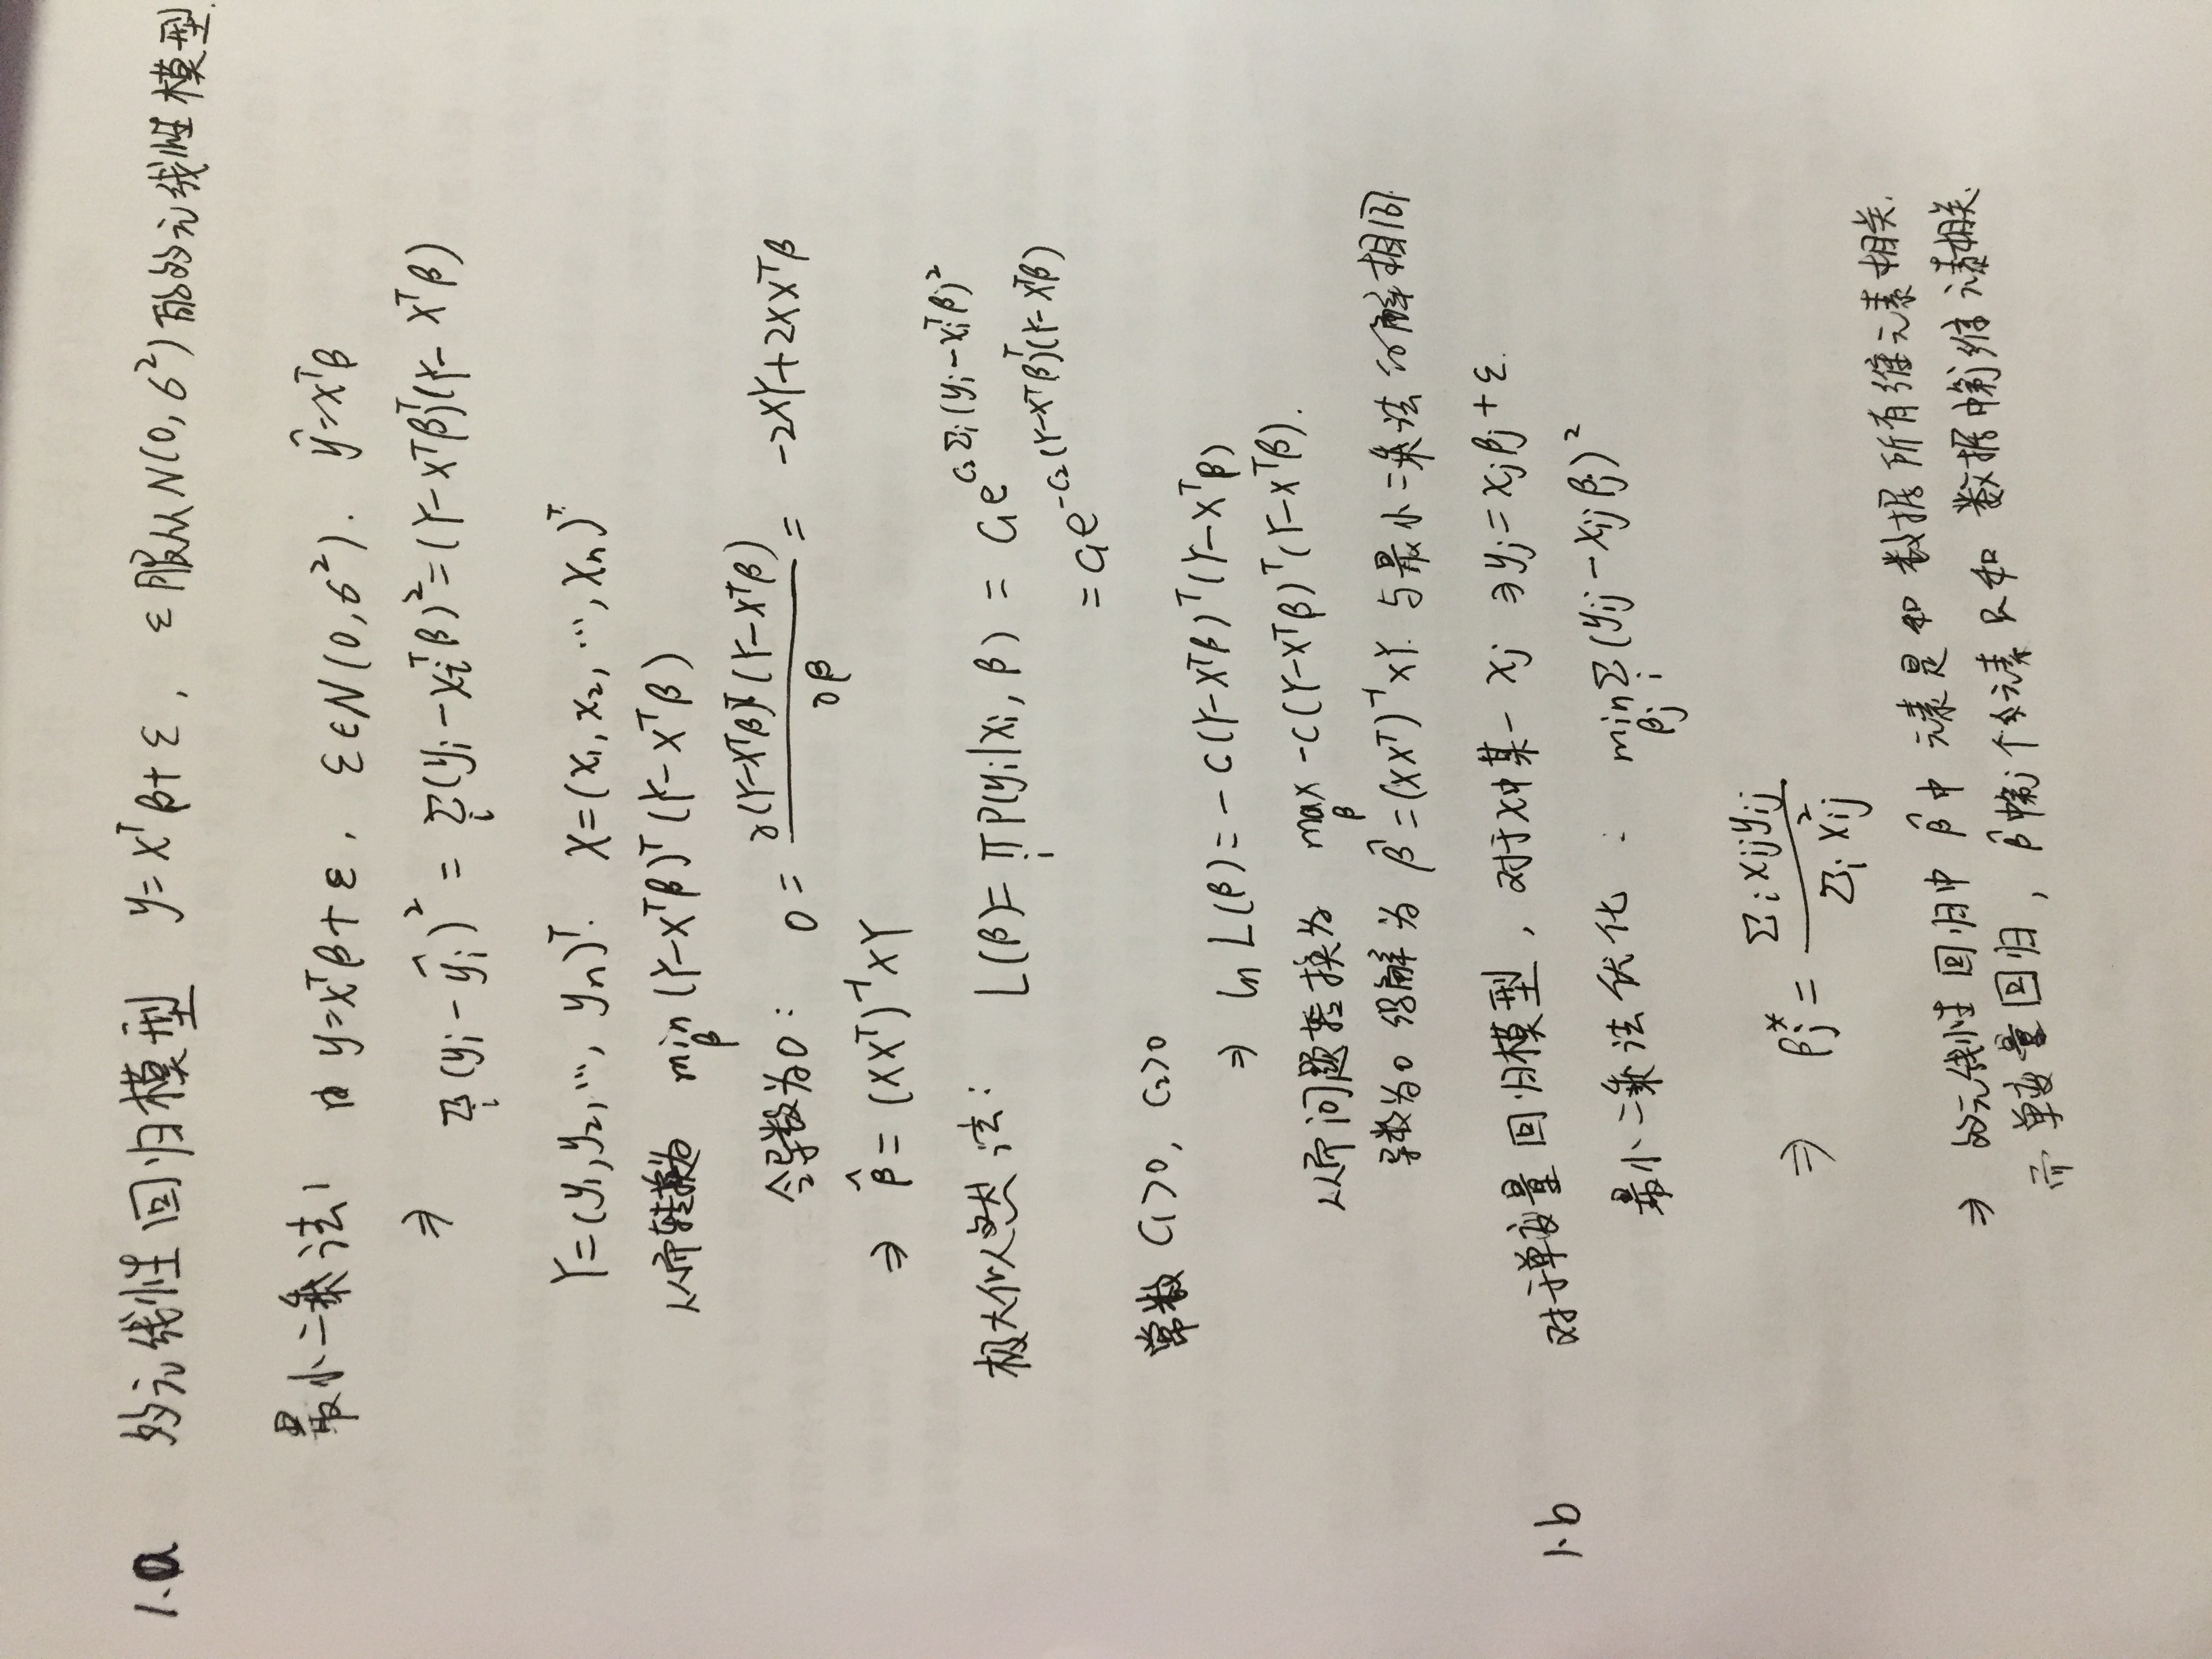 1.a 多元线性回归模型 y=xᵀβ+ε, ε服从N(0,σ²)的多元线性模型.
最小二乘法: 由 y=xᵀβ+ε, ε∈N(0,σ²). ŷ=xᵀβ
⇒ Σᵢ(yᵢ-ŷᵢ)² = Σᵢ(yᵢ-xᵢᵀβ)² = (Y-Xᵀβ)ᵀ(Y-Xᵀβ)
Y=(y₁,y₂,…, yₙ)ᵀ. X=(x₁,x₂,…,xₙ)ᵀ
从而转换为 min_β (Y-Xᵀβ)ᵀ(Y-Xᵀβ)
令导数为0: 0 = ∂(Y-Xᵀβ)ᵀ(Y-Xᵀβ)/∂β = -2XY+2XXᵀβ
⇒ β̂ = (XXᵀ)⁻¹XY
极大似然法: L(β)=∏ᵢP(yᵢ|xᵢ, β) = C₁e^{C₂Σᵢ(yᵢ-xᵢᵀβ)²}
= C₁e^{-C₂(Y-Xᵀβ)ᵀ(Y-Xᵀβ)}
常数 C₁>0, C₂>0
⇒ ln L(β) = -C(Y-Xᵀβ)ᵀ(Y-Xᵀβ)
从而问题转换为 max_β -C(Y-Xᵀβ)ᵀ(Y-Xᵀβ).
导数为0 得解为 β̂=(XXᵀ)⁻¹XY. 与最小二乘法的解相同.
1.b 对于单变量回归模型, 对于x中某一 xⱼ ⇒ yⱼ=xⱼβⱼ+ε.
最小二乘法优化: min_{βⱼ} Σᵢ(yᵢⱼ-xᵢⱼβⱼ)²
⇒ βⱼ* = Σᵢxᵢⱼyᵢⱼ / Σᵢxᵢⱼ²
⇒ 多元线性回归中 β̂中 元素是和 数据所有维元素相关.
而单变量回归, β̂中第j个元素只和 数据中第j维元素相关.